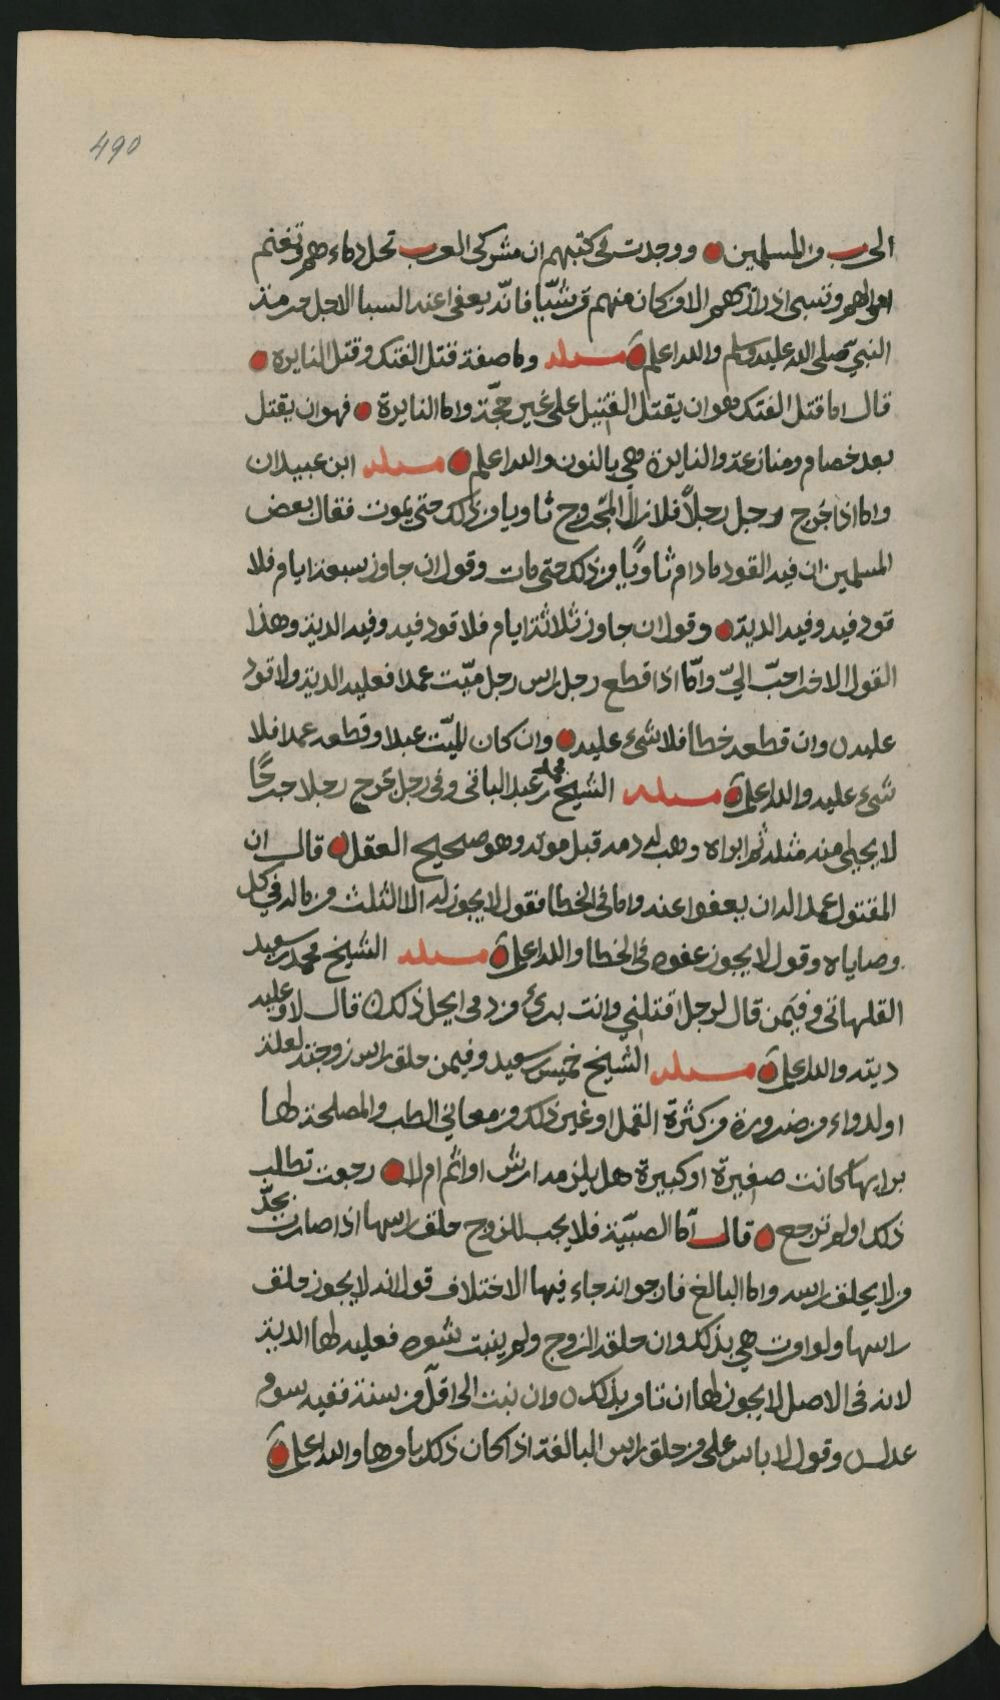 490
الى ب والمسلمين ووجدت في كتبهم ان مشركى العرب تحل دماءهم وتغنم
اموالهم وتسبى ذراريهم الا من كان منهم قرشيّا فانّه يعفى عند السبا لاجل حرمة
النبيّ صلى الله عليه وسلم والله اعلم مسئلة وما صفة قتل الفتك وقتل النايرة
قال اما قتل الفتك فهو ان يقتل القتيل على غير حجّة واما النايرة فهو ان يقتل
بعد خصام ومنازعة والنايرة هي بالنون والله اعلم مسئلة ابن عبيدان
واما اذا جرح رجل رجلاً فلا زال المجروح ثاويا من ذلك حتى يموت فقال بعض
المسلمين ان فيه القود ما دام ثاويًا من ذلك حتى مات وقول ان جاوز سبعة ايام فلا
قود فيه وفيه الدية وقول ان جاوز ثلاثة ايام فلا قود فيه وفيه الدية وهذا
القول الاخر احبّ اليّ وامّا اذا قطع رجل راس رجل ميّت عمدا فعليه الدية ولا قود
عليه وان قطعه خطأ فلا شىء عليه وان كان الميّت عبدا وقطعه عمدا فلا
شىء عليه والله اعلم مسئلة الشيخ محمد بن عبد الباقى وفى رجل جرح رجلا جرحًا
لا يحيى منه مثله ثم ابراه وهب له دمه قبل موته وهو صحيح العقل قال ان
المقتول عمدا له ان يعفوا عنه واما فى الخطا فقول لا يجوز له الا الثلث من ماله في كل
وصاياه وقول لا يجوز عفوه فى الخطا والله اعلم مسئلة الشيخ محمد بن سعيد
القلهاتى وفيمن قال لرجل اقتلني وانت برئ من دمى ايحل ذلك قال لا وعليه
ديته والله اعلم مسئلة الشيخ خميس بن سعيد وفيمن حلق راس زوجته لعلة
او لدواء من ضرورة من كثرة القمل او غير ذلك من معاني الطب والمصلحة لها
برايها كانت صغيرة او كبيرة هل يلزمه ارش او اثم ام لا رجعت تطالب
ذلك او لم ترجع قال امّا الصبيّة فلا يجب للزوج حلق راسها اذا صارت بحدّ
من لا يحلق راسه واما البالغ فارجو انه جاء فيها الاختلاف قول انه لا يجوز حلق
راسها ولو امرت هي بذلك وان حلقه الزوج ولم ينبت شعره فعليه لها الدية
لانه فى الاصل لا يجوز لها ان تامر بذلك وان نبت الى اقلّ من سنة ففيه سوم
عدل وقول لا باس على من حلق راس البالغة اذا كان ذلك بامرها والله اعلم